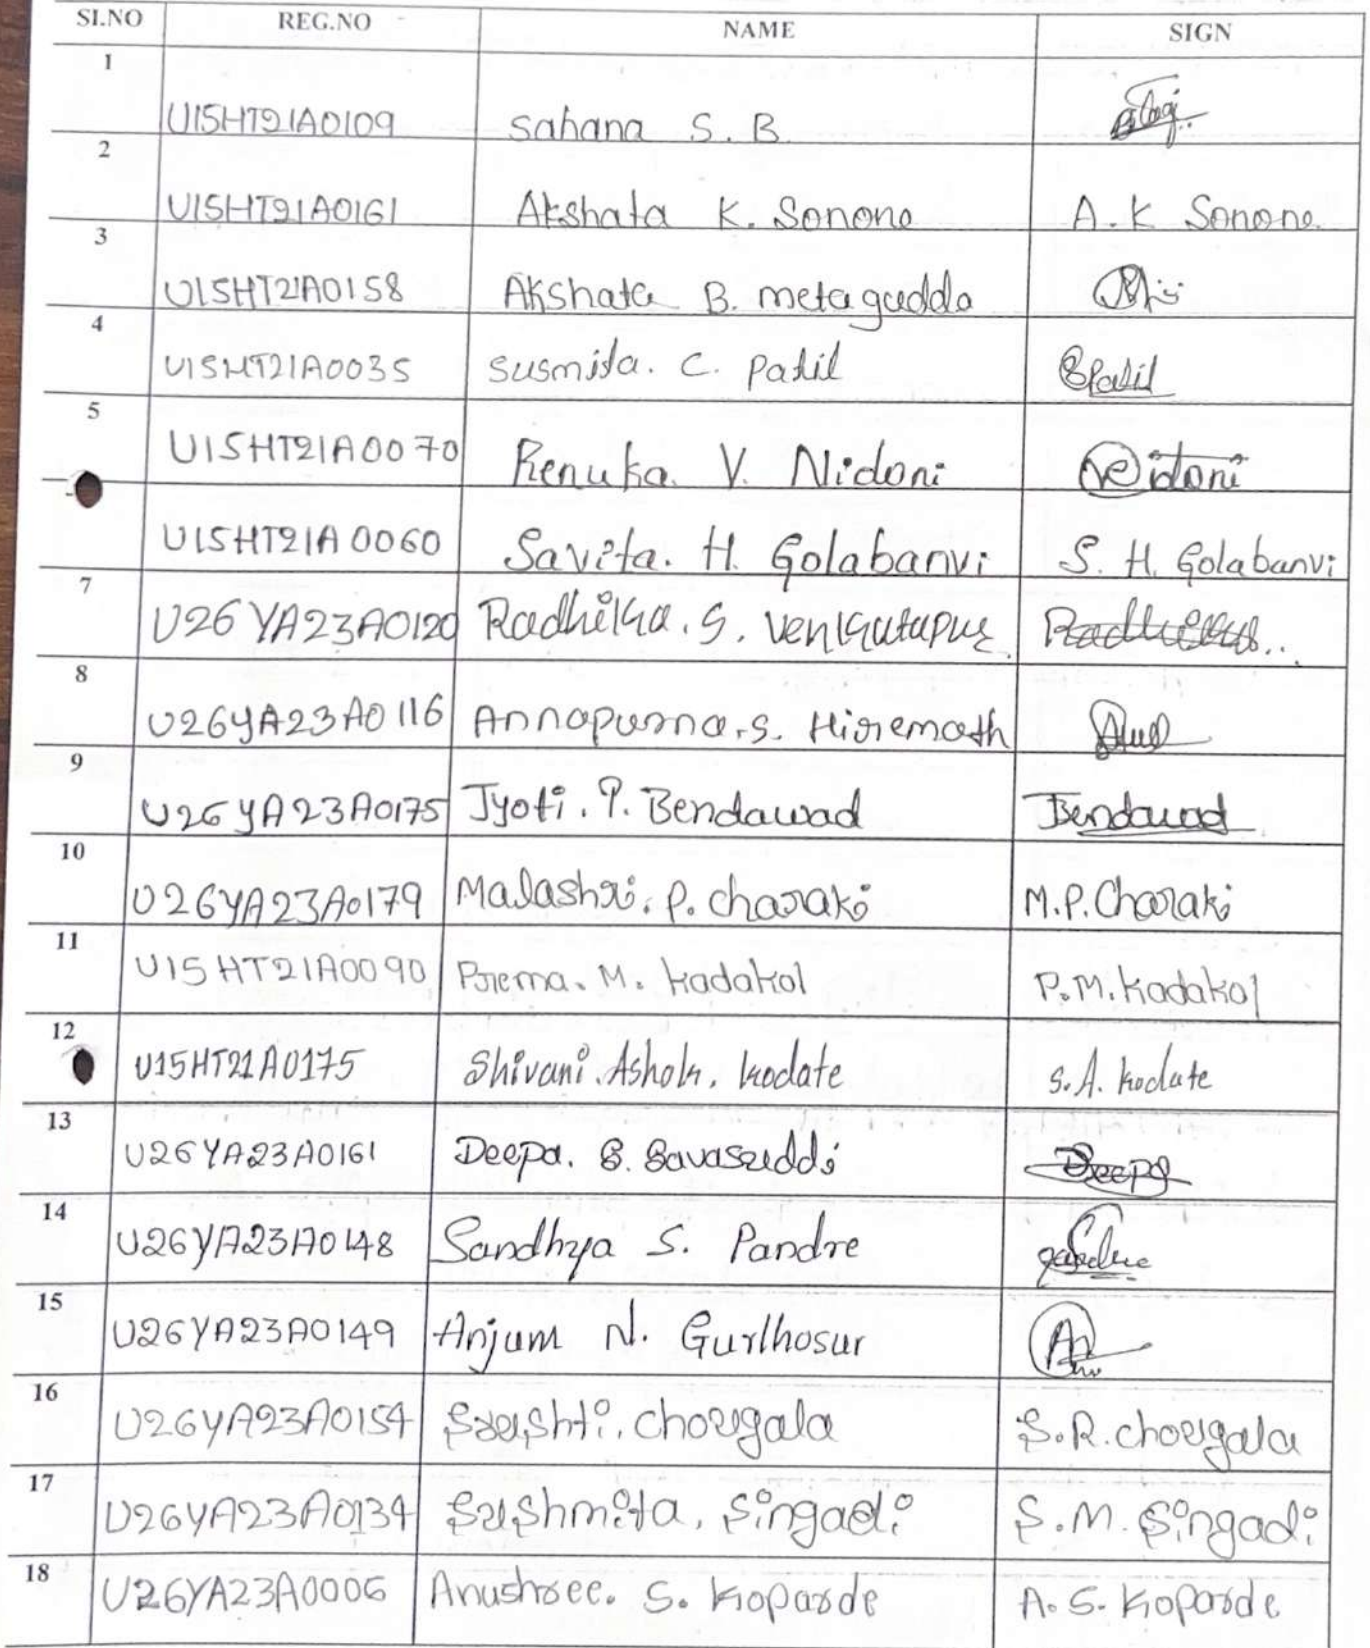 SI.NO REG.NO NAME SIGN
1 U15HT21A0109 Sahana S. B
2 U15HT21A0161 Akshata K. Sonone A. K Sonone.
3 U15HT21A0158 Akshata B. metagudda
4 U15HT21A0035 Susmita. C. Patil SPatil
5 U15HT21A0070 Renuka. V. Nidoni
U15HT21A0060 Savita. H. Golabanvi S. H. Golabanvi
7 U26YA23A0120 Radhika. S. Venkatapur Radhika..
8 U26YA23A0116 Annapurna. S. Hiremath
9 U26YA23A0175 Jyoti. P. Bendawad Bendawad
10 U26YA23A0179 Malashri. P. Charaki M.P. Charaki
11 U15HT21A0090 Prema. M. Kadakol P. M. Kadakol
12 U15HT21A0175 Shivani. Ashok. kodate S. A. kodate
13 U26YA23A0161 Deepa. S. Savasuddi Deepa
14 U26YA23A0148 Sandhya S. Pandre
15 U26YA23A0149 Anjum N. Gurlhosur
16 U26YA23A0154 Srushti. Chougala S. R. chougala
17 U26YA23A0134 Sushmita. Singadi S. M. Singadi
18 U26YA23A0006 Anushree. S. Koparde A. S. Koparde